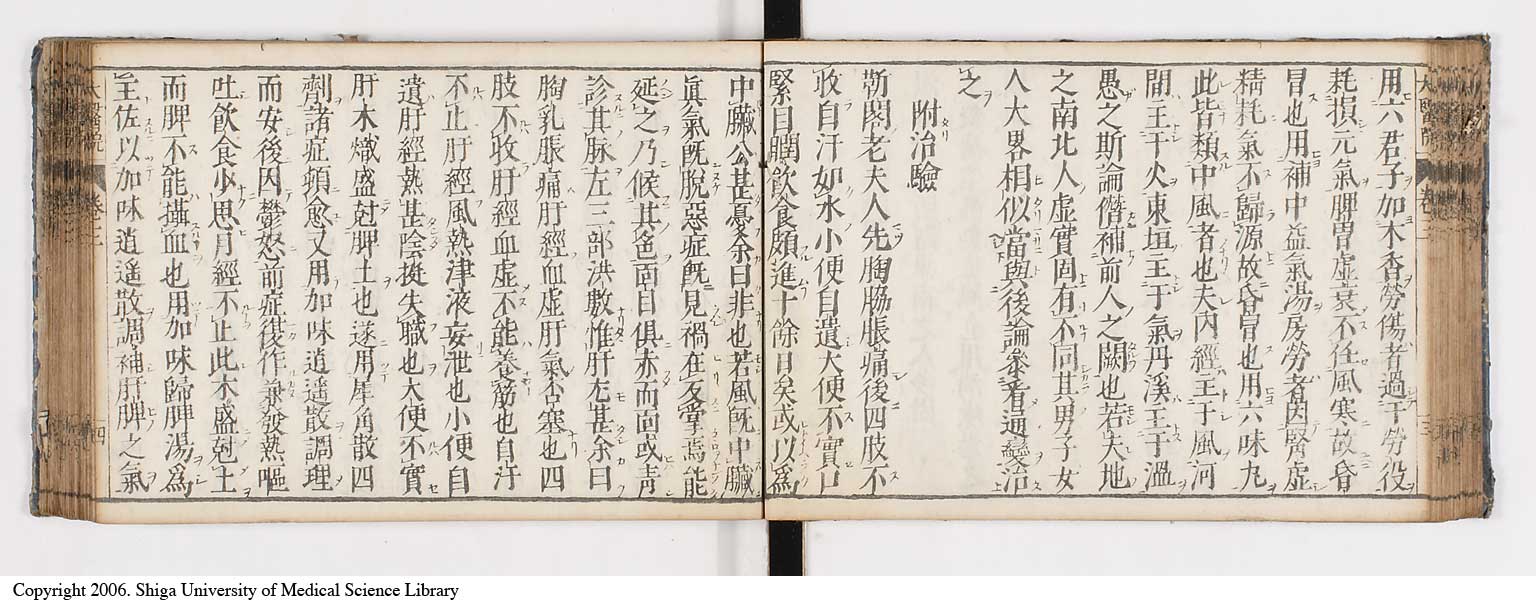 用六君子加木香勞傷者過于勞役
耗損元氣脾胃虛衰不任風寒故昏
冒也用補中益氣湯房勞者因腎虛
精耗氣不歸源故昏冒也用六味丸
此皆類中風者也夫內經主于風河
間主于火東垣主于氣丹溪主于濕
愚之斯論僭補前人之闕也若夫地
之南北人虛實固有不同其男子女
人大畧相似當與後論參看通變治
之
附治驗
靳閣老夫人先胸脇脹痛後四肢不
收自汗如水小便自遺大便不實口
緊目瞤飮食頗進十餘日矣或以爲
中臟公甚憂余曰非也若風旣中臟
眞氣旣脫惡症旣見禍在反掌焉能
延之乃候其色面目俱赤而面或靑
診其脉左三部洪數惟肝尤甚余曰
胸乳脹痛肝經血虛肝氣否塞也四
肢不收肝經血虛不能養筋也自汗
不止肝經風熱津液妄泄也小便自
遺肝經熱甚陰挺失職也大便不實
肝木熾盛尅脾土也遂用犀角散四
劑諸症頓愈又用加味逍遙散調理
而安後因鬱怒前症復作兼發熱嘔
吐飮食少思月經不止此木盛尅土
而脾不能攝血也用加味歸脾湯爲
主佐以加味逍遙散調補肝脾之氣
Copyright 2006. Shiga University of Medical Science Library